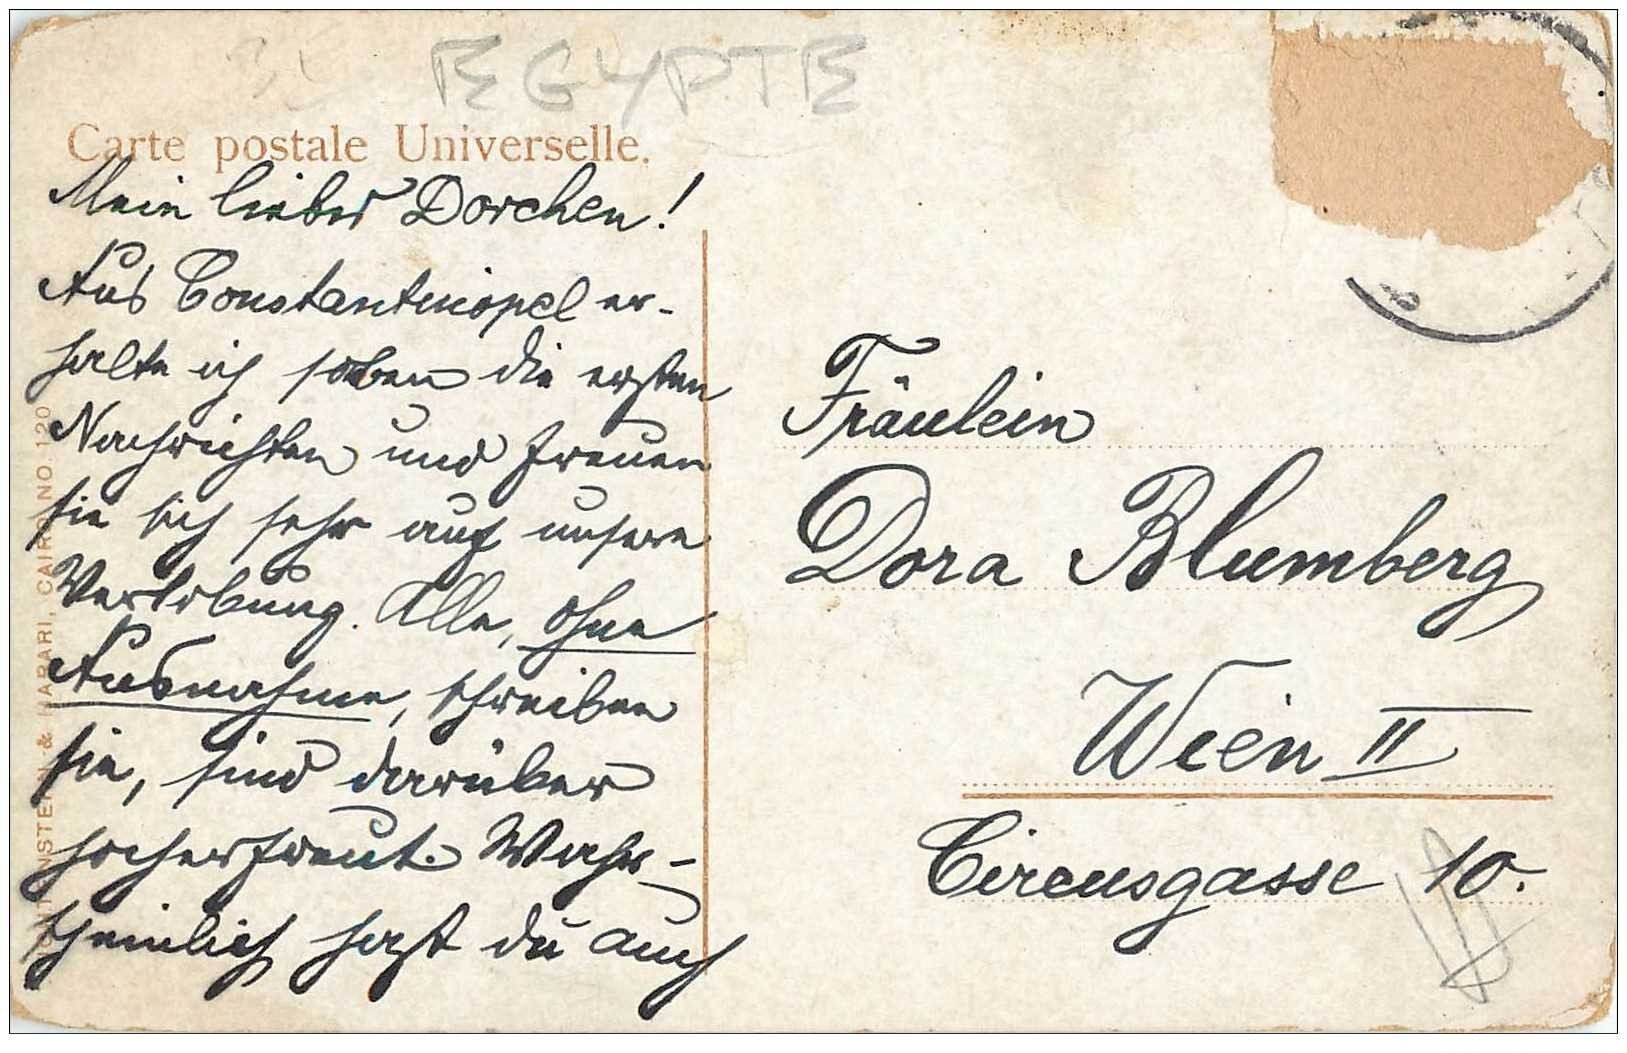 EGYPTE
Carte postale Universelle.
Mein lieber Dorchen!
Aus Constantinopel er-
halte ich soeben die ersten
Nachrichten und freuen
sie sich sehr auf unsere
Verlobung. Alle, ohne
Ausnahme, schreiben
sie, sind darüber
hocherfreut. Wahr-
scheinlich hast du auch
Fräulein
Dora Blumberg
Wien II
Circusgasse 10.
& HARARI, CAIRO NO 120